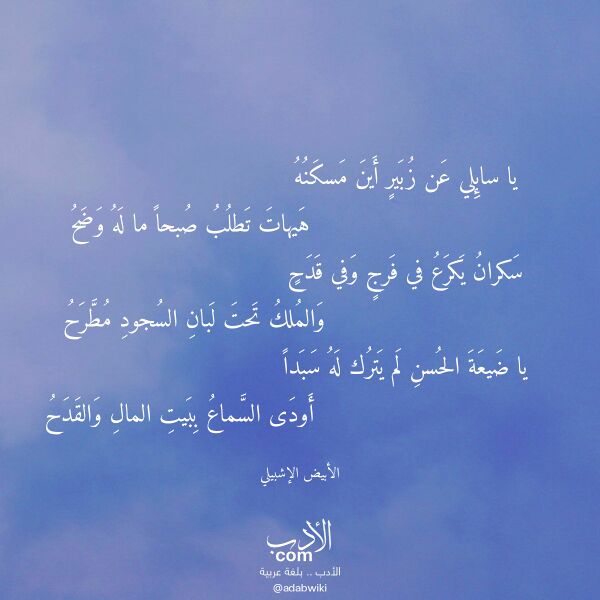 يا سايِلِي عَن زُبَيرٍ أَينَ مَسكَنُهُ
هَيهاتَ تَطلُبُ صُبحاً ما لَهُ وَضَحُ
سَكرانُ يَكرَعُ في فَرجٍ وَفي قَدَحٍ
وَالمُلكُ تَحتَ لَبانِ السُجودِ مُطَّرَحُ
يا ضَيعَةَ الحُسنِ لَم يَترُك لَهُ سَبَداً
أَودَى السَّماعُ بِبَيتِ المالِ وَالقَدَحُ
الأبيض الإشبيلي
الأدب
com
الأدب .. بلغة عربية
@adabwiki